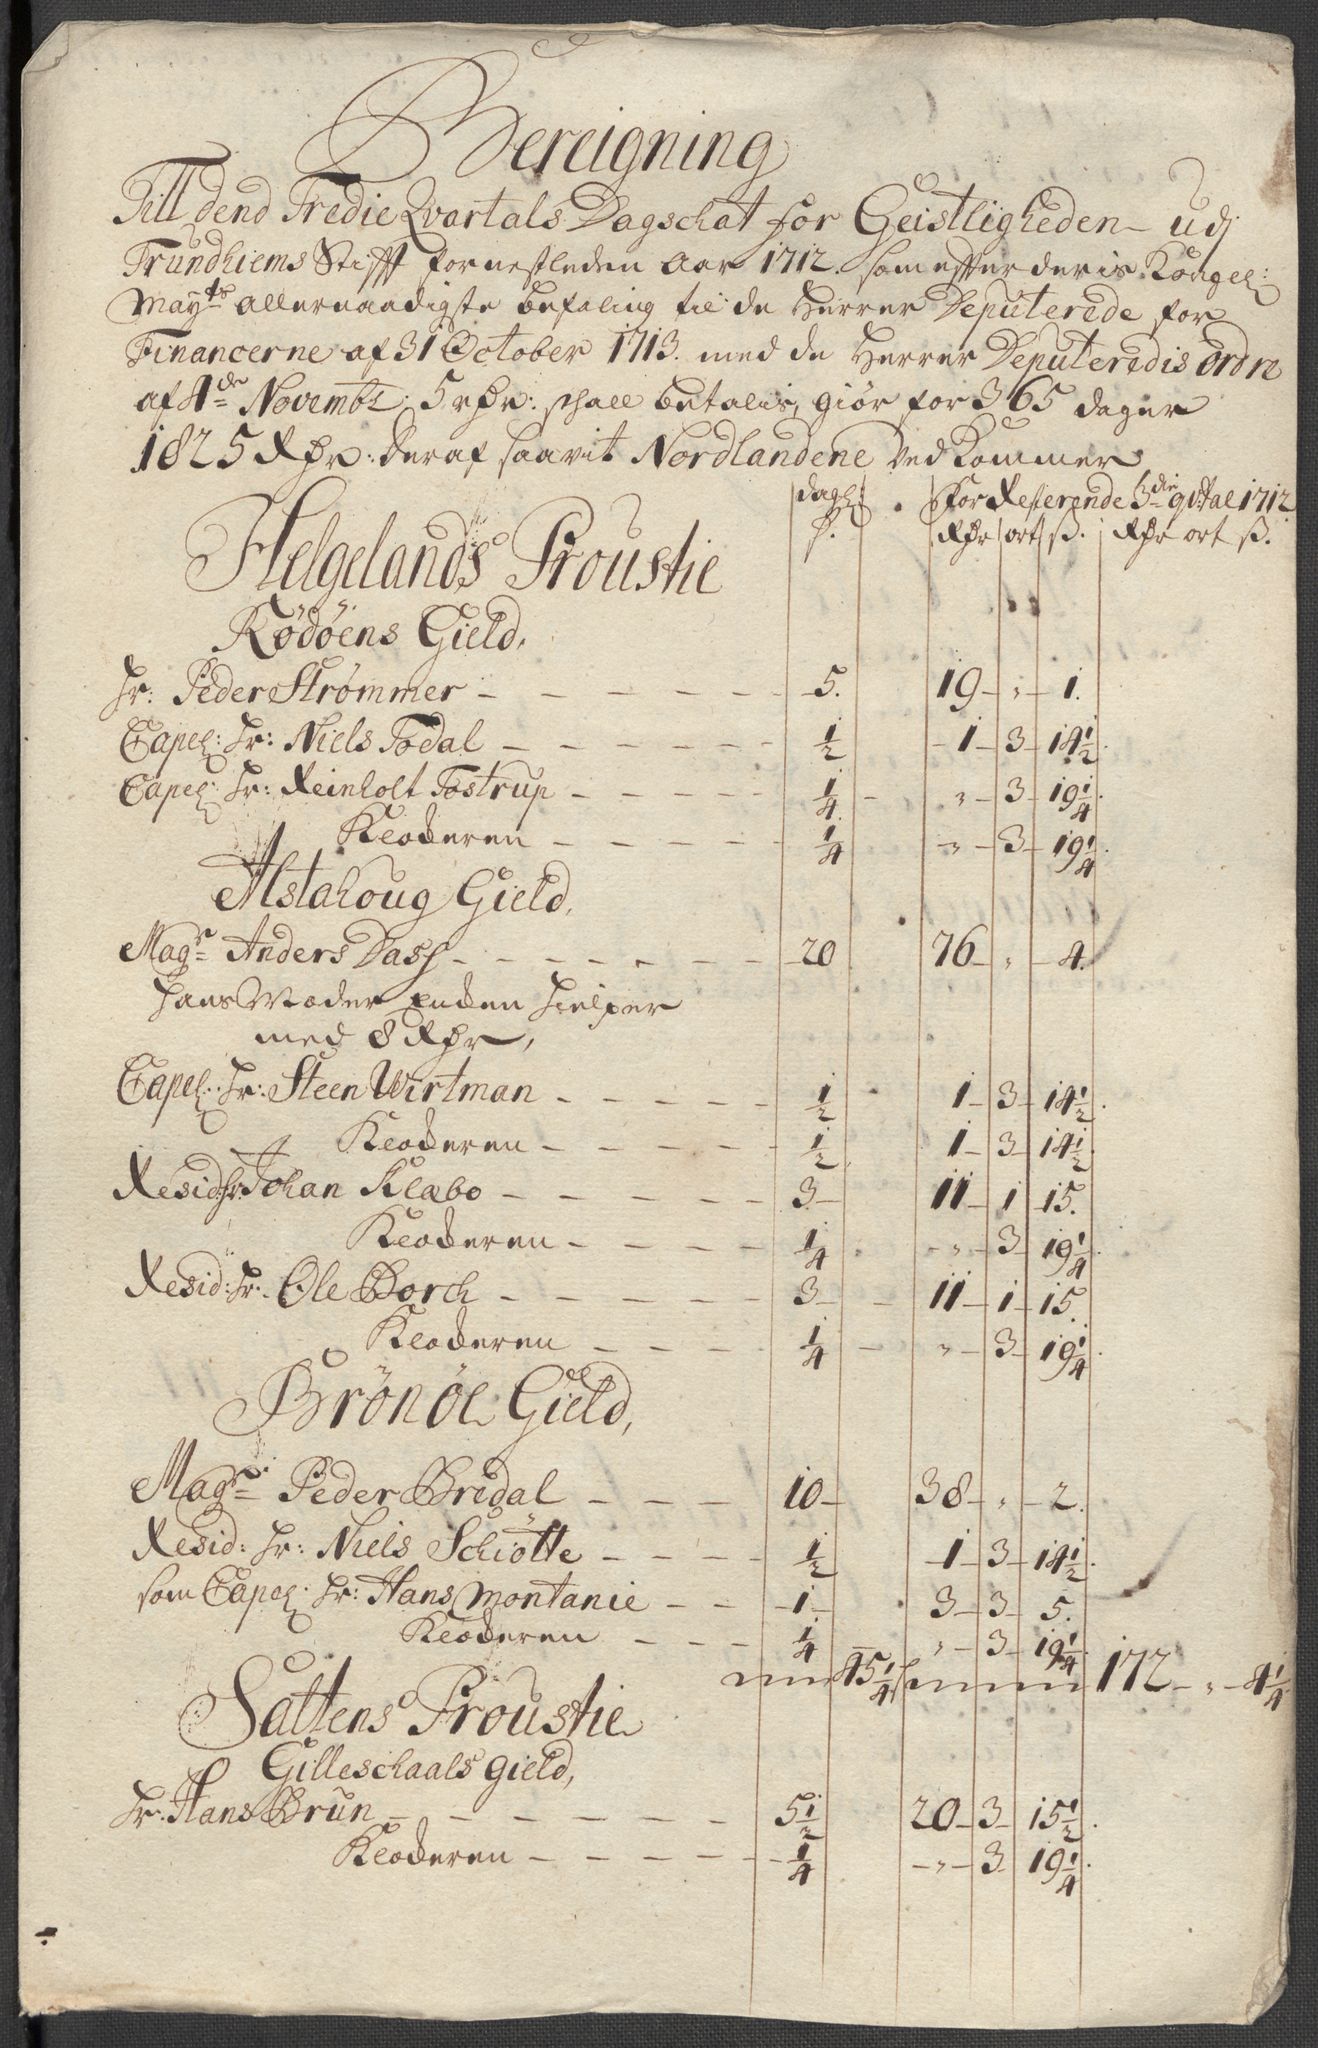 Bereigning
Till dend Tredie Qvartals Dagschat for Geistligheden udj
Trundhiems Stifft for nestleden Aar 1712. som effter deris Kongel:
Mayts allernaadigste befaling til de Herrer Deputerede for
Financerne af 31 October 1713. med de Herrer Deputeredis Ordre
af 4de Novembr: 5 rdr: schall betalis, giør for 365 dager
1825 Rdr: deraf saavit Nordlandene Ved Kommer
dagl: For Resterende 3die qvtal 1712
ß. Rdr ort ß. Rdr ort ß.
Helgelands Proustie
Rödöens Gield,
Hr: Peder Strømmer - 5. 19 - „ - 1.
Capel: Hr: Niels Todal - 1/2 - 1 - 3 - 14 1/2.
Capel: Hr: Reinholt Tostrup - 1/4 - „ - 3 - 19 1/4.
Klockeren - 1/4 - „ - 3 - 19 1/4.
Alstahoug Gield,
Magr Anders Dass - 20 76 - „ - 4.
hans Moder Encken hielper
med 8 Rdr,
Capel: Hr: Steen Wirtman - 1/2 1 - 3 - 14 1/2.
Klockeren - 1/2 1 - 3 - 14 1/2.
Resid: Hr: Johan Klæbo - 3 - 11 - 1 - 15.
Klockeren - 1/4 - „ - 3 - 19 1/4.
Resid: Hr: Ole Borch - 3 - 11 - 1 - 15.
Klockeren - 1/4 - „ - 3 - 19 1/4.
Brönöe Gield,
Magr Peder Bredal - 10 - 38 - „ - 2.
Resid: Hr: Niels Schiötte - 1/2 - 1 - 3 - 14 1/2.
som Capel: Hr: Hans Montanie - 1 - 3 - 3 - 5.
Klockeren - 1/4 „ - 3 - 19 1/4.
45 1/4 172 - „ - 4 1/4.
Saltens Proustie
Gilleschaals gield,
Hr: Hans Brun - 5 1/2 20 - 3 - 15 1/2.
Klockeren - 1/4 - „ - 3 19 1/4.